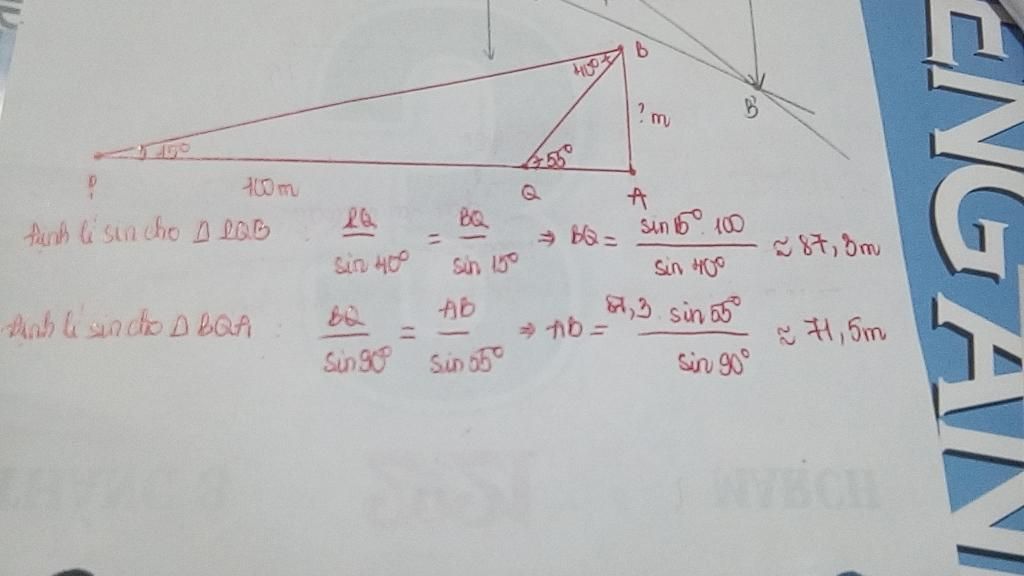 B
40°
B'
? m
15°
55°
P
100m
Q
A
định lí sin cho Δ PQB : PQ/sin 40° = BQ/sin 15° ⇒ BQ = sin 15° . 100/sin 40° ≈ 87,3m
định lí sin cho Δ BQA : BQ/sin 90° = AB/sin 55° ⇒ AB = 87,3 . sin 55°/sin 90° ≈ 71,5m
THÁNG 3
MARCH
ENGAN